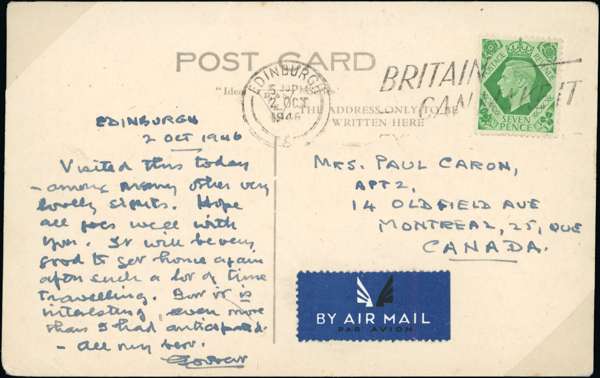 POST CARD
EDINBURGH
2 OCT
1946
BRITAIN
CAN
IT
POSTAGE
REVENUE
SEVEN
PENCE
THE ADDRESS ONLY TO BE
WRITTEN HERE
EDINBURGH
2 OCT 1946
Visited this today
- among many other very
lovely sights. Hope
all goes well with
you. It will be very
good to get home again
after such a lot of time
travelling. But it is
interesting, even more
than I had anticipated.
- All my best.
MRS. PAUL CARON,
APT 2,
14 OLDFIELD AVE
MONTREAL, 25, QUE
CANADA.
BY AIR MAIL
PAR AVION